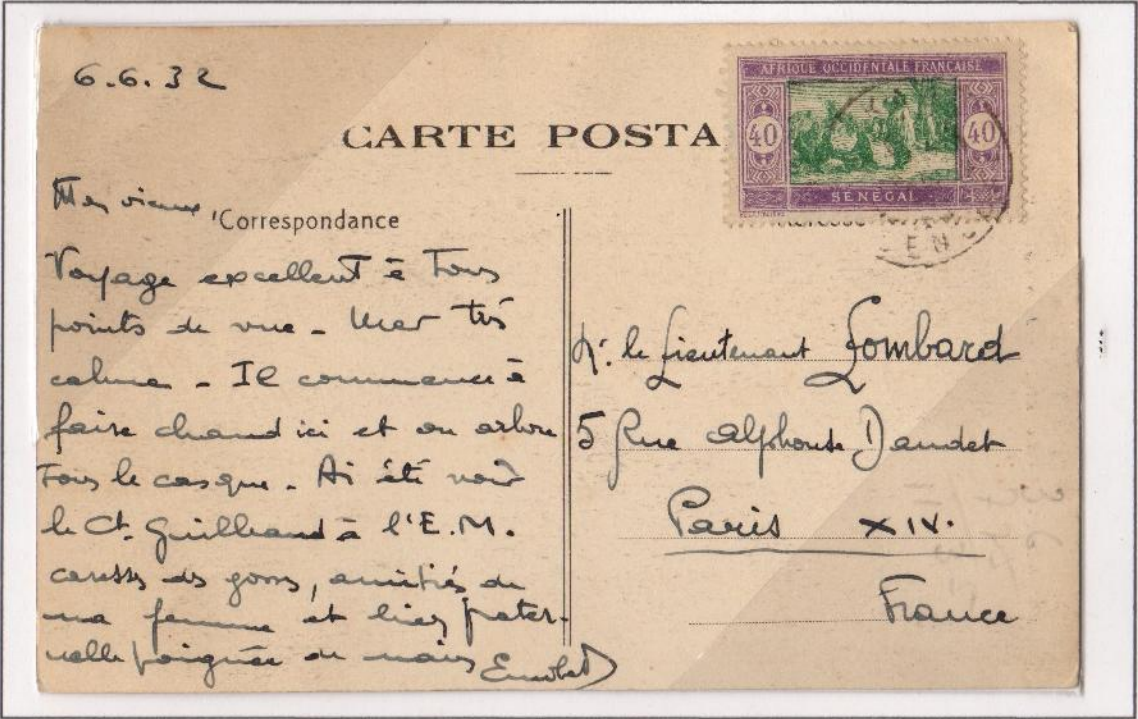 6.6.32
CARTE POSTA
AFRIQUE OCCIDENTALE FRANÇAISE
40 40
SÉNÉGAL
SEN
Mon vieux,
Correspondance
Voyage excellent à tous
points de vue - Mer très
calme - Il commence à
faire chaud ici et on arbore
tous le casque. Ai été voir
le Ct. Guilhaud à l'E.M.
caresses des gosses, amitiés de
ma femme et bien frater-
nelle poignée de mains
M. le Lieutenant Lombard
5 Rue Alphonse Daudet
Paris XIV.
France